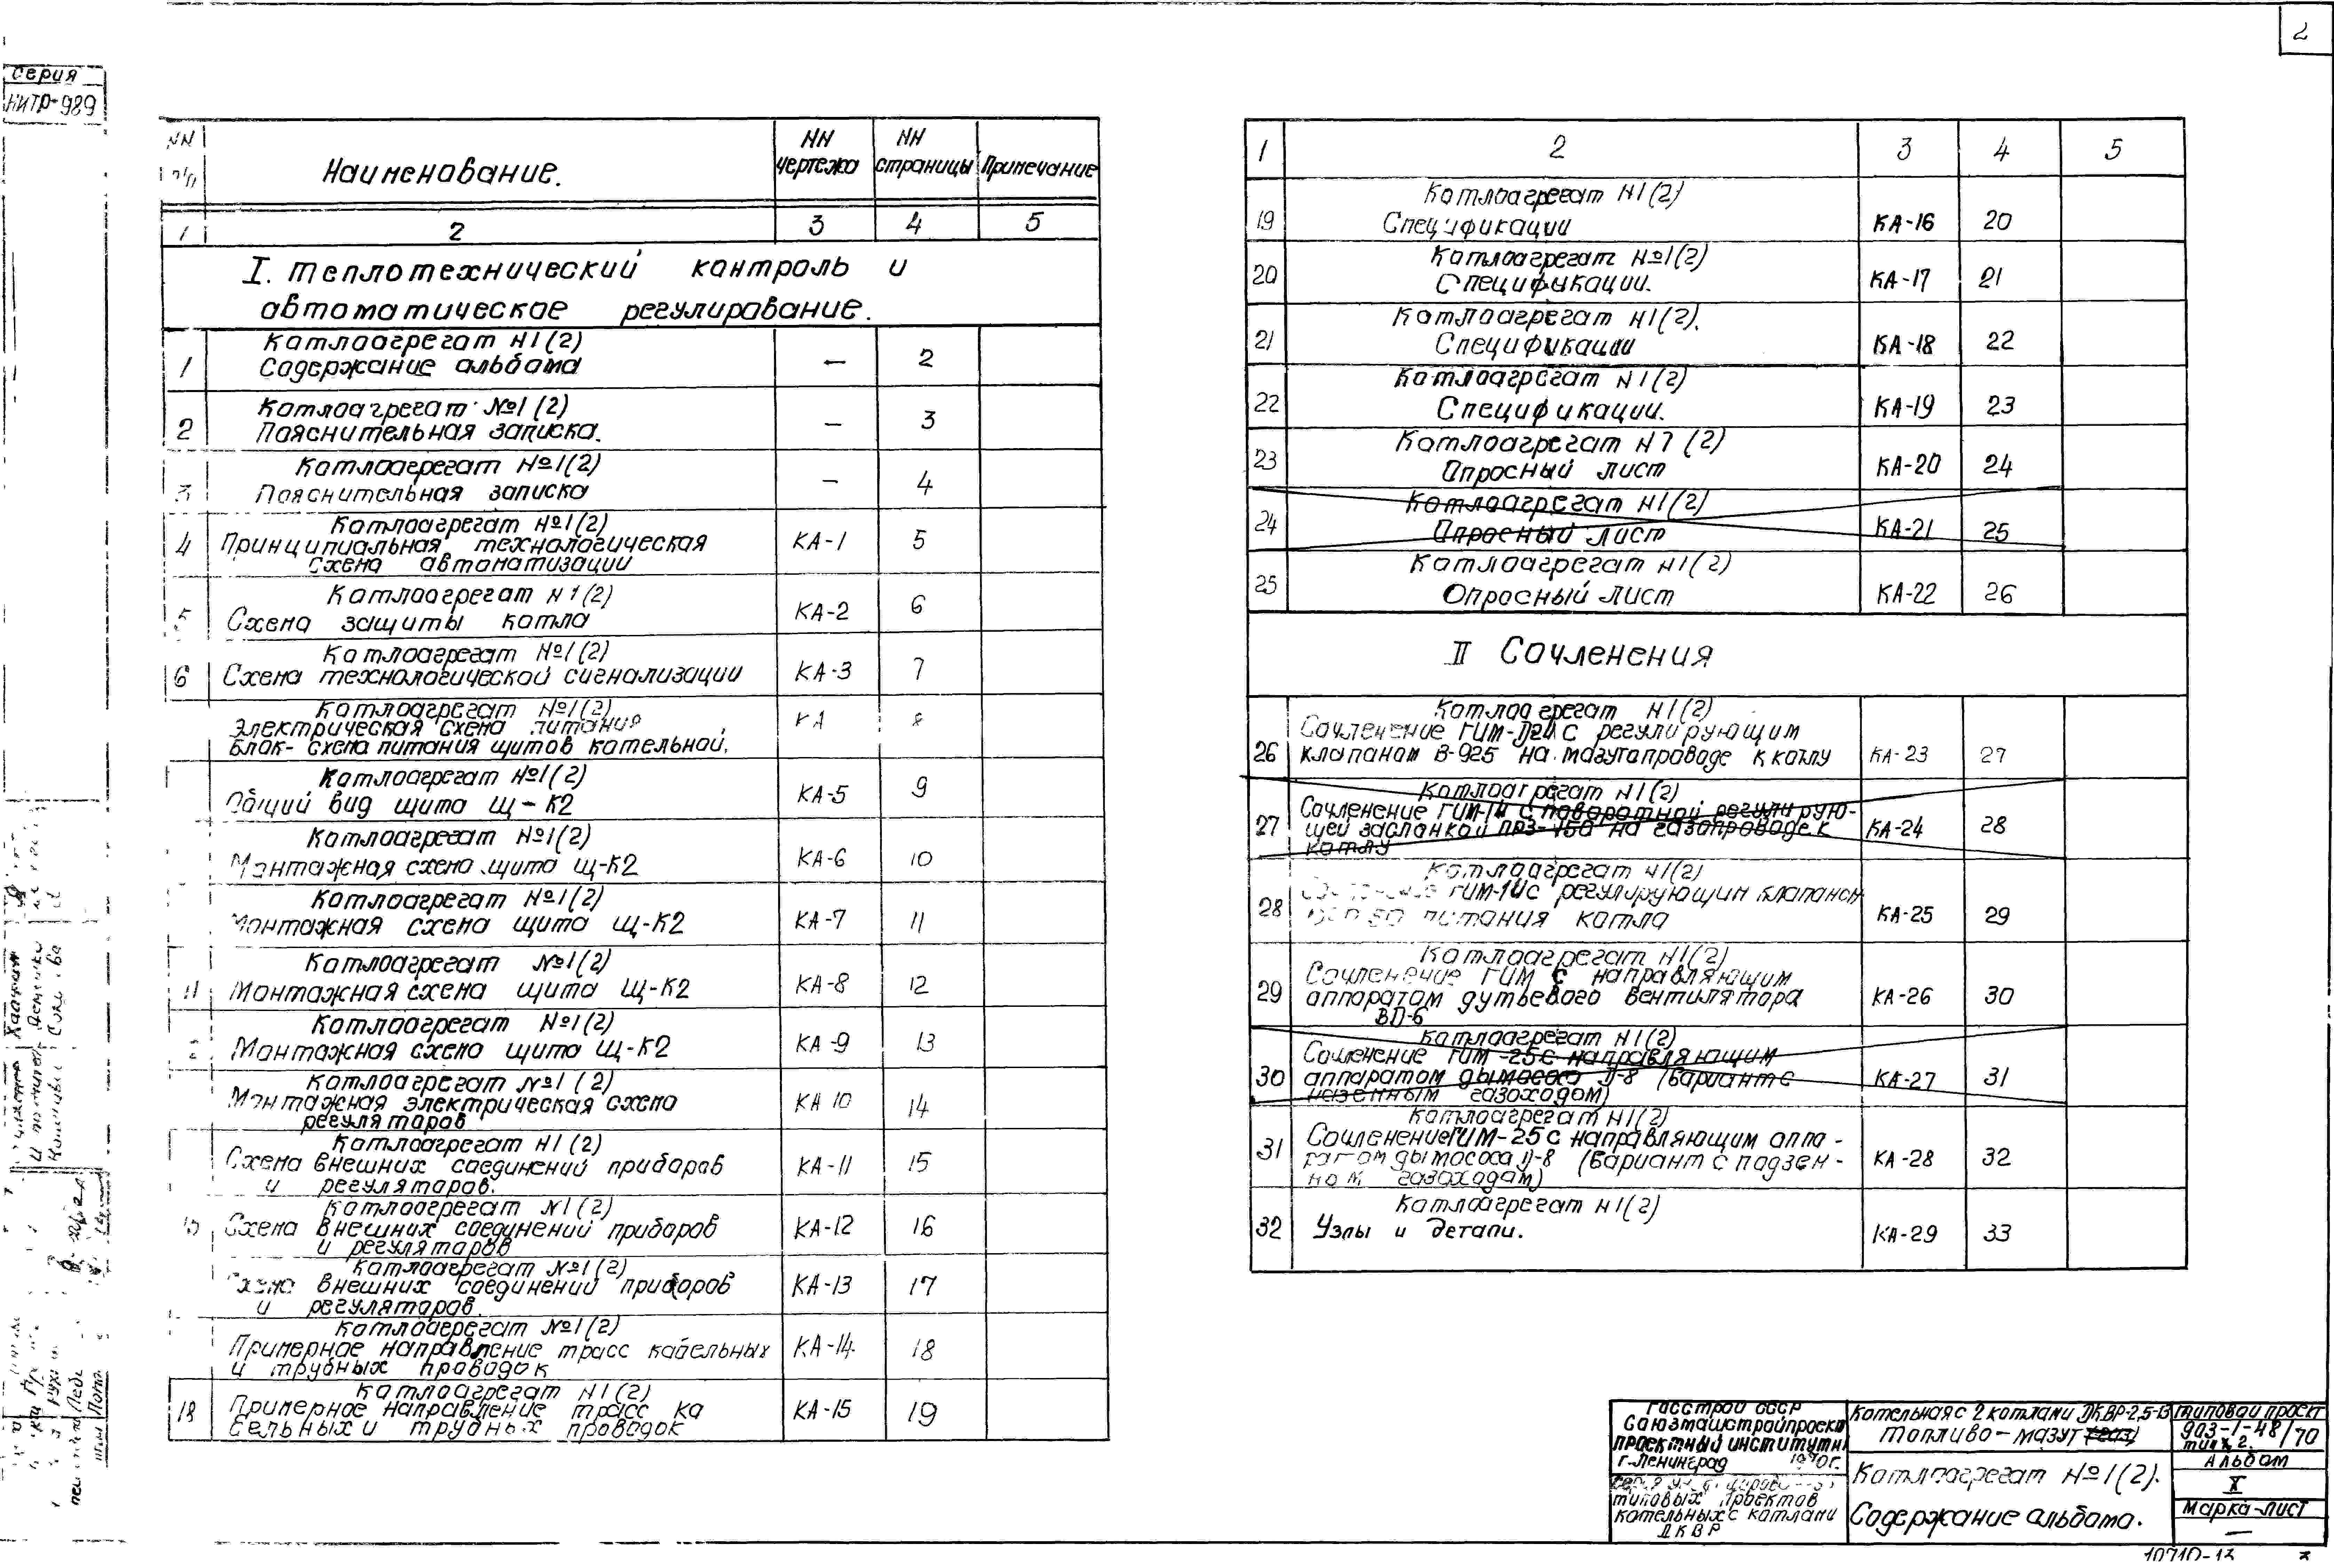 2
Серия
НИТР-989
NN п/п Наименование. NN чертежа NN страницы Примечание
1 2 3 4 5
I. Теплотехнический контроль и
автоматическое регулирование.
Котлоагрегат N1(2)
1 Содержание альбома — 2
Котлоагрегат №1(2)
2 Пояснительная записка. — 3
Котлоагрегат №1(2)
3 Пояснительная записка — 4
Котлоагрегат №1(2)
4 Принципиальная технологическая КА-1 5
схема автоматизации
Котлоагрегат N1(2)
5 Схема защиты котла КА-2 6
Котлоагрегат №1(2)
6 Схема технологической сигнализации КА-3 7
Котлоагрегат №1(2)
Электрическая схема питания КА 8
Блок-схема питания щитов котельной.
Котлоагрегат №1(2)
Общий вид щита Щ-К2 КА-5 9
Котлоагрегат №1(2)
Монтажная схема щита Щ-К2 КА-6 10
Котлоагрегат №1(2)
Монтажная схема щита Щ-К2 КА-7 11
Котлоагрегат №1(2)
11 Монтажная схема щита Щ-К2 КА-8 12
Котлоагрегат №1(2)
Монтажная схема щита Щ-К2 КА-9 13
Котлоагрегат №1(2)
Монтажная электрическая схема КА 10 14
регуляторов
Котлоагрегат N1(2)
Схема внешних соединений приборов КА-11 15
и регуляторов.
Котлоагрегат N1(2)
15 Схема внешних соединений приборов КА-12 16
и регуляторов
Котлоагрегат №1(2)
Схема внешних соединений приборов КА-13 17
и регуляторов.
Котлоагрегат №1(2)
Примерное направление трасс кабельных КА-14 18
и трубных проводок
Котлоагрегат N1(2)
18 Примерное направление трасс ка КА-15 19
бельных и трубных проводок
1 2 3 4 5
Котлоагрегат N1(2)
19 Спецификации КА-16 20
Котлоагрегат №1(2)
20 Спецификации. КА-17 21
Котлоагрегат N1(2).
21 Спецификации КА-18 22
Котлоагрегат N1(2)
22 Спецификации. КА-19 23
Котлоагрегат N1(2)
23 Опросный лист КА-20 24
Котлоагрегат N1(2)
24 Опросный лист КА-21 25
Котлоагрегат N1(2)
25 Опросный лист КА-22 26
II Сочленения
Котлоагрегат N1(2)
Сочленение ГИМ-Д2И с регулирующим
26 клапаном В-925 на мазутопроводе к котлу КА-23 27
Котлоагрегат N1(2)
Сочленение ГИМ-1И с поворотной регулирую-
27 щей заслонкой ПРЗ-150 на газопроводе к КА-24 28
котлу
Котлоагрегат N1(2)
Сочленение ГИМ-1И с регулирующим клапаном
28 питания котла КА-25 29
Котлоагрегат N1(2)
Сочленение ГИМ с направляющим
29 аппаратом дутьевого вентилятора КА-26 30
ВД-6
Котлоагрегат N1(2)
Сочленение ГИМ-25 с направляющим
30 аппаратом дымососа Д-8 (вариант с КА-27 31
наземным газоходом)
Котлоагрегат N1(2)
Сочленение ГИМ-25 с направляющим аппа-
31 ратом дымососа Д-8 (вариант с подзем- КА-28 32
ном газоходам)
Котлоагрегат N1(2)
32 Узлы и детали. КА-29 33
Госстрой СССР
Союзмашстройпроект
проектный институт N1
г. Ленинград 1970г.
типовых проектов
котельных с котлами
ДКВР
Котельная с 2 котлами ДКВР-2,5-13
Топливо-мазут (газ)
Котлоагрегат №1(2).
Содержание альбома.
Типовой проект
903-1-48/70
тип 2.
Альбом
X
Марка-лист
—
10710-13 3